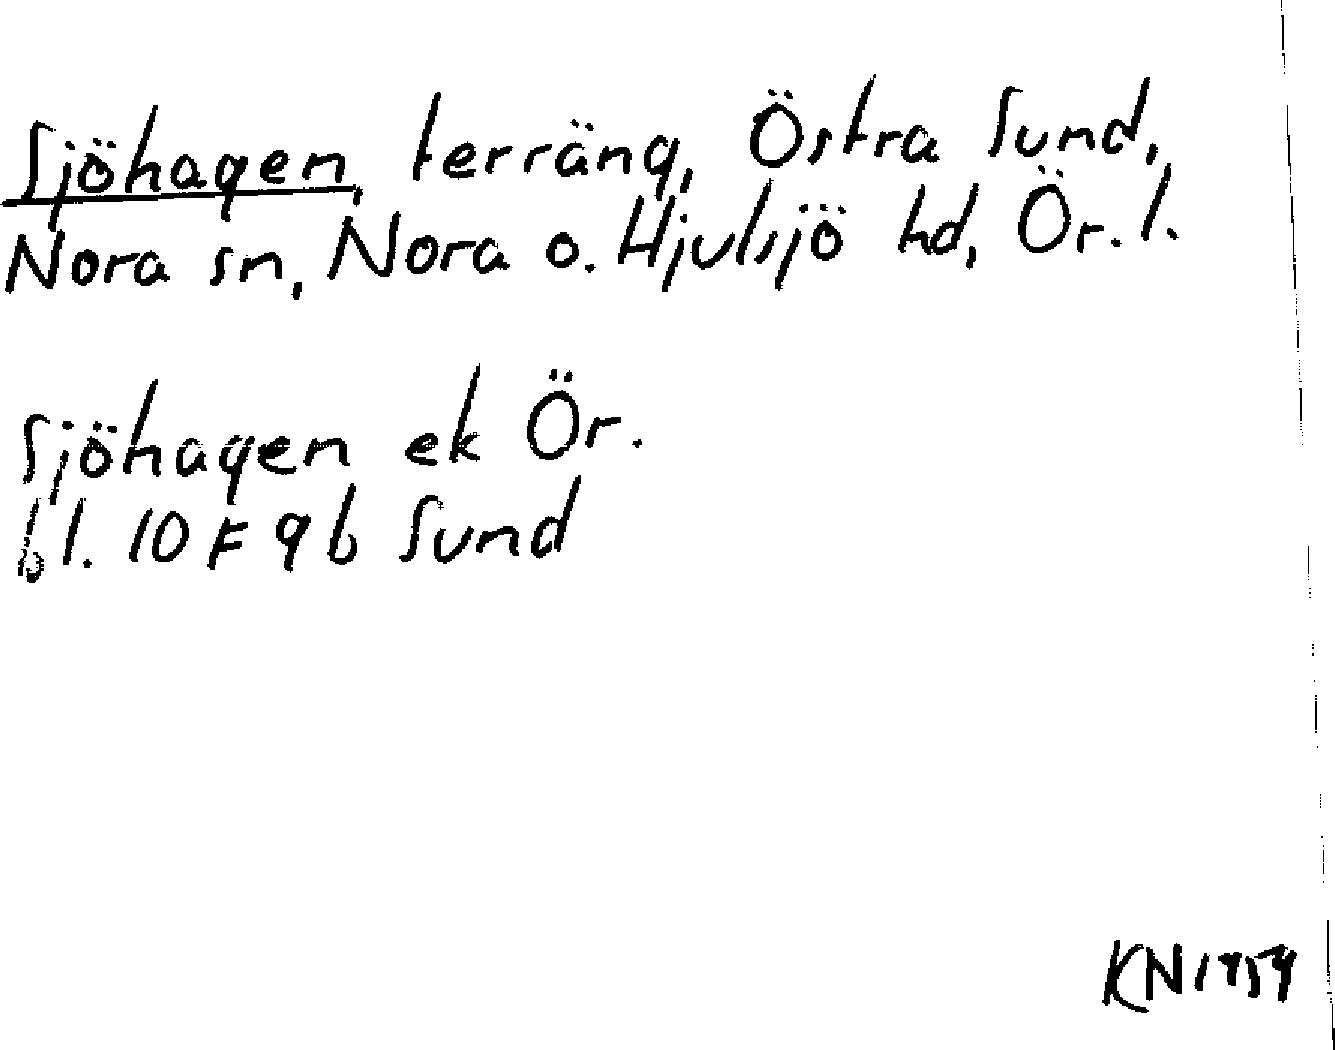 Sjöhagen, terräng, Östra Sund,
Nora sn, Nora o. Hjulsjö hd, Ör. l.
Sjöhagen ek Ör.
bl. 10 F 9 b Sund
KN 1959